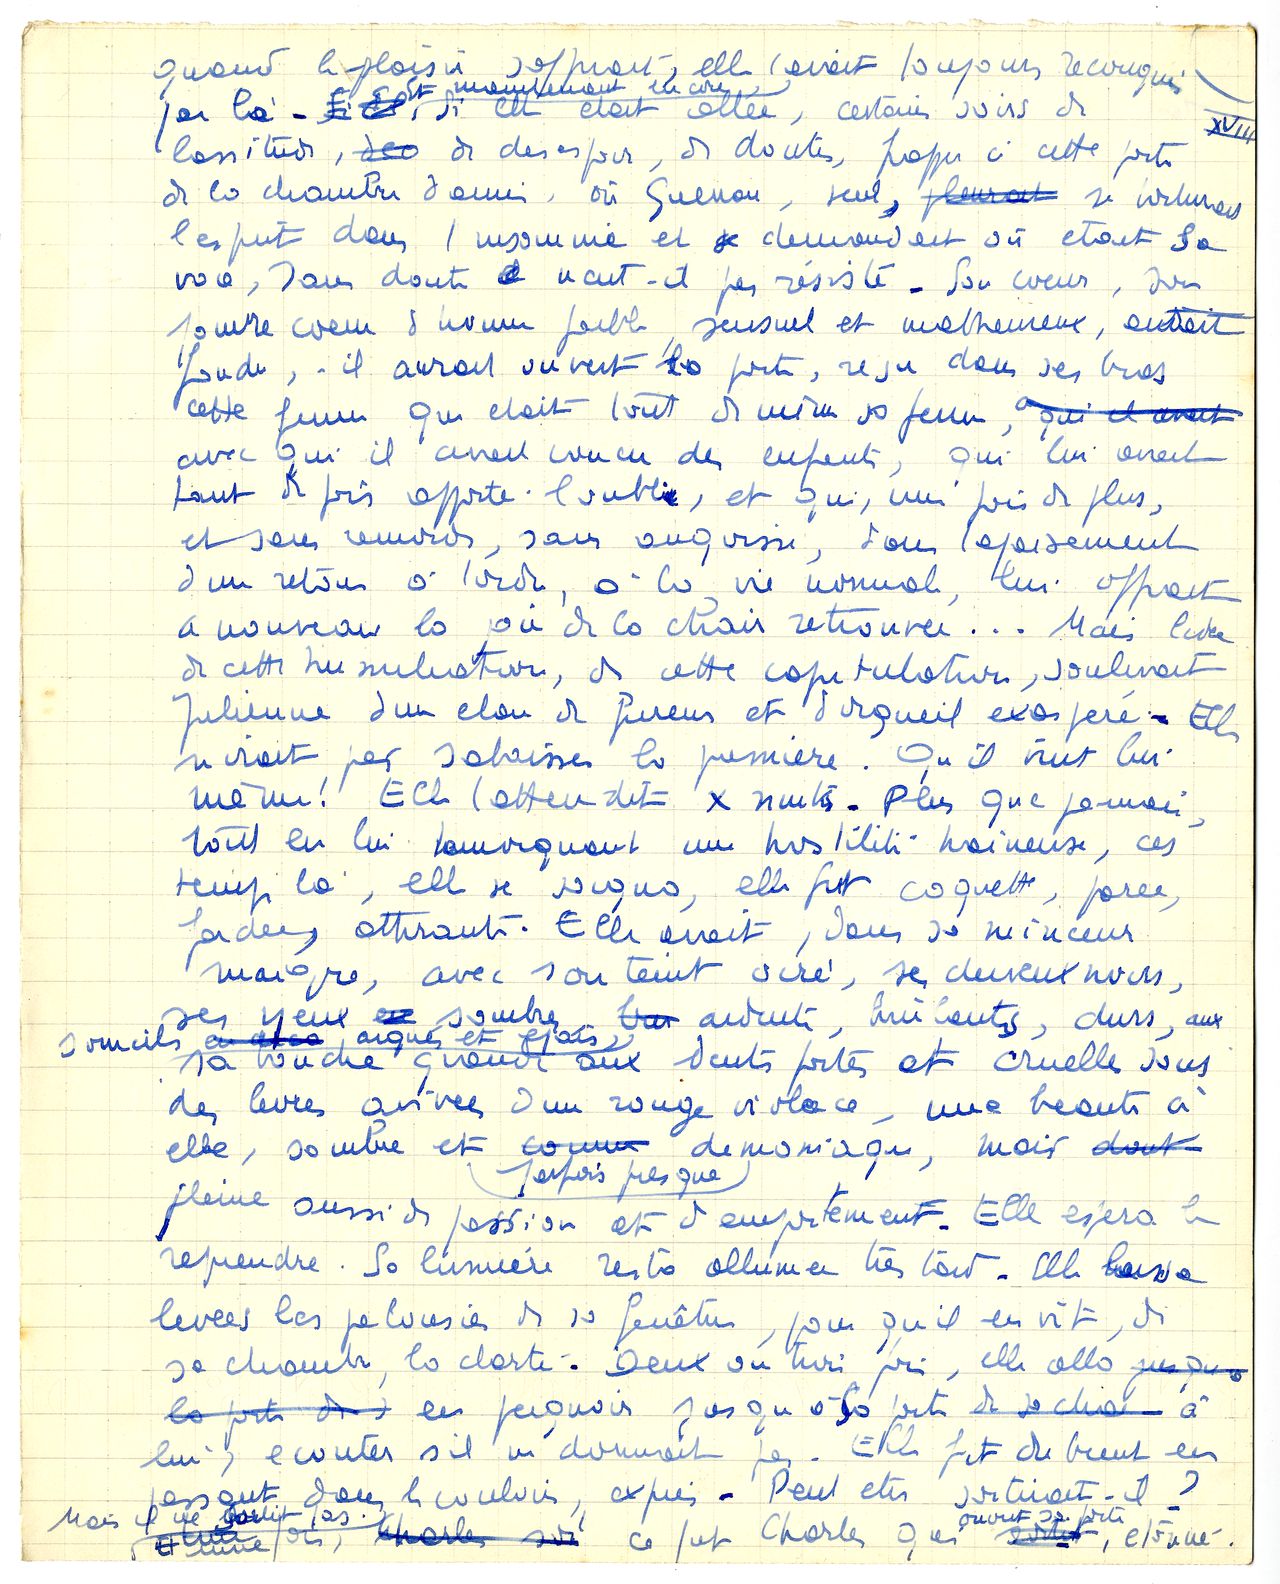 quand le plaisir s'offrait, elle l'avait toujours reconquis
par là - Et maintenant encore, si elle était allée, certains soirs de
XVIII
lassitude, de désespoir, de doutes, frapper à cette porte
de la chambre d'amis, où Guernon, seul, pleurait se torturait
l'esprit dans l'insomnie et se demandait où était sa
voie, sans doute n'eut-il pas résisté - Son coeur, son
pauvre coeur d'homme faible, sensuel et malheureux, aurait
fondu, - il aurait ouvert la porte, reçu dans ses bras
cette femme qui était tout de même sa femme, qui il avait
avec qui il avait conçu des enfants, qui lui avait
tant de fois apporté l'oubli, et qui, une fois de plus,
et sans remords, sans angoisse, dans l'apaisement
d'un retour à l'ordre, à la vie normale, lui offrait
à nouveau la joie de la chair retrouvée... Mais l'idée
de cette humiliation, de cette capitulation, soulevait
Julienne d'un élan de fureur et d'orgueil exaspéré - Elle
n'irait pas s'abaisser la première. Qu'il vînt lui
même! Elle l'attendit x nuits - Plus que jamais,
tout en lui témoignant une hostilité haineuse, ces
temps là, elle se soigna, elle fut coquette, parée,
fardée, attirante. Elle avait, dans sa minceur
maigre, avec son teint ocré, ses cheveux noirs,
ses yeux sombres ardents, brûlants, durs, aux
sourcils arqués et épais,
sa bouche grande aux dents fortes et cruelles sous
des lèvres avivées d'un rouge violacé, une beauté à
elle, sombre et comme démoniaque, mais dont
parfois presque
pleine aussi de passion et d'emportement. Elle espéra le
reprendre. Sa lumière resta allumée très tard - Elle laissa
levées les jalousies de sa fenêtre, pour qu'il en vît, de
sa chambre, la clarté - Deux ou trois fois, elle alla jusqu'à
la porte de en peignoir jusqu'à la porte de sa cha à
lui, écouter s'il ne dormait pas. Elle fit du bruit en
passant dans le couloir, exprès - Peut être sortirait-il ?
Mais il ne sortit pas.
ouvrit sa porte
Et une fois, Charles sor ce fut Charles qui sortit, étonné.